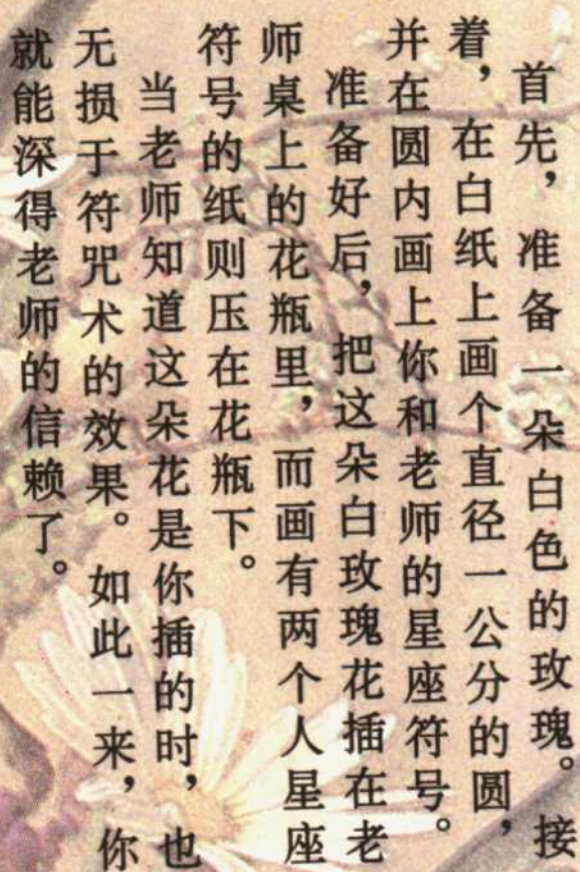 首先，准备一朵白色的玫瑰。接
着，在白纸上画个直径一公分的圆，
并在圆内画上你和老师的星座符号。
准备好后，把这朵白玫瑰花插在老
师桌上的花瓶里，而画有两个人星座
符号的纸则压在花瓶下。
当老师知道这朵花是你插的时，也
无损于符咒术的效果。如此一来，你
就能深得老师的信赖了。